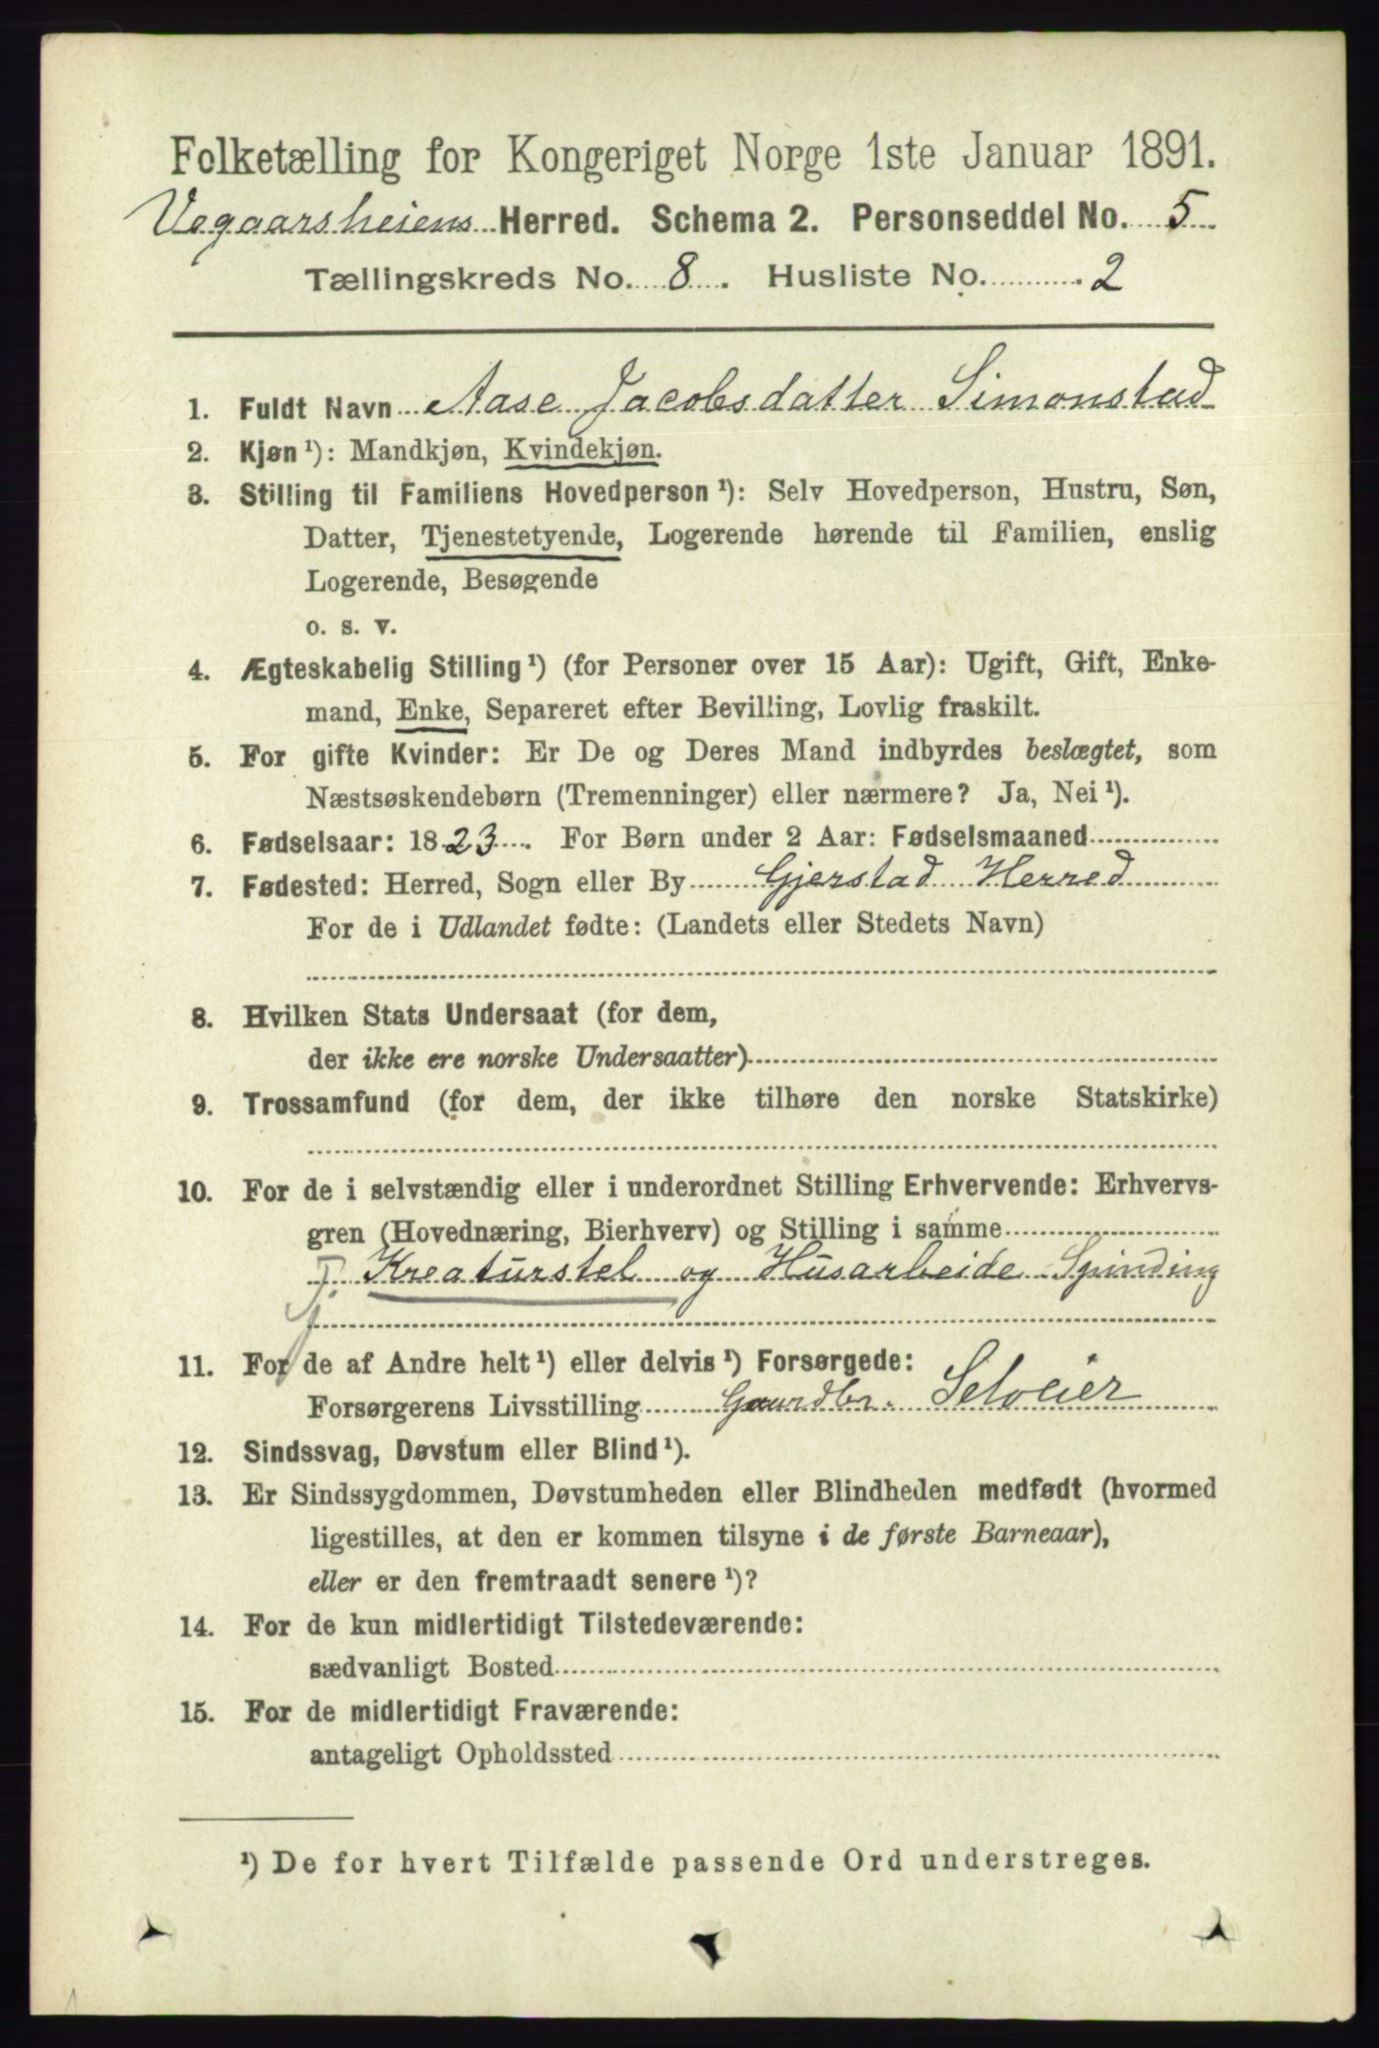 Folketælling for Kongeriget Norge 1ste Januar 1891.
Vegaarsheiens Herred. Schema 2. Personseddel No. 5
Tællingskreds No. 8. Husliste No. 2
1. Fuldt Navn Aase Jacobsdatter Simonstad
2. Kjøn ¹): Mandkjøn, Kvindekjøn.
3. Stilling til Familiens Hovedperson ¹): Selv Hovedperson, Hustru, Søn,
Datter, Tjenestetyende, Logerende hørende til Familien, enslig
Logerende, Besøgende
o. s. v.
4. Ægteskabelig Stilling ¹) (for Personer over 15 Aar): Ugift, Gift, Enke-
mand, Enke, Separeret efter Bevilling, Lovlig fraskilt.
5. For gifte Kvinder: Er De og Deres Mand indbyrdes beslægtet, som
Næstsøskendebørn (Tremenninger) eller nærmere? Ja, Nei ¹).
6. Fødselsaar: 1823. For Børn under 2 Aar: Fødselsmaaned
7. Fødested: Herred, Sogn eller By Gjerstad Herred
For de i Udlandet fødte: (Landets eller Stedets Navn)
8. Hvilken Stats Undersaat (for dem,
der ikke ere norske Undersaatter)
9. Trossamfund (for dem, der ikke tilhøre den norske Statskirke)
10. For de i selvstændig eller i underordnet Stilling Erhvervende: Erhvervs-
gren (Hovednæring, Bierhverv) og Stilling i samme
Kreaturstel og Husarbeide Spinding
11. For de af Andre helt ¹) eller delvis ¹) Forsørgede:
Forsørgerens Livsstilling Gaardbr. Selveier
12. Sindssvag, Døvstum eller Blind ¹).
13. Er Sindssygdommen, Døvstumheden eller Blindheden medfødt (hvormed
ligestilles, at den er kommen tilsyne i de første Barneaar),
eller er den fremtraadt senere ¹)?
14. For de kun midlertidigt Tilstedeværende:
sædvanligt Bosted
15. For de midlertidigt Fraværende:
antageligt Opholdssted
¹) De for hvert Tilfælde passende Ord understreges.